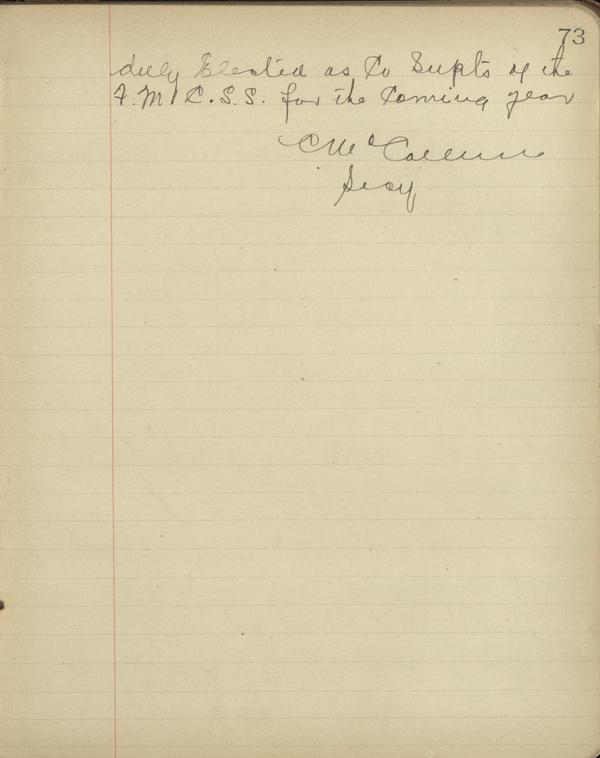 73
duly Elected as Co Supts of the
F. M. C. S. S. for the Coming year
C Mc Collum
Secy